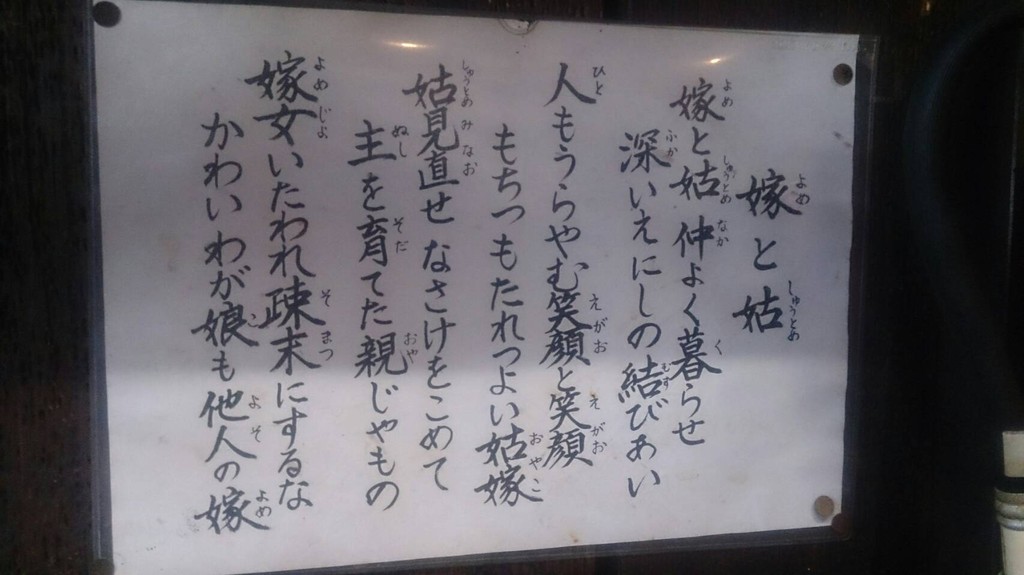 嫁と姑
嫁と姑 仲よく暮らせ
深いえにしの結びあい
人もうらやむ笑顔と笑顔
もちつもたれつよい姑嫁
姑見直せ なさけをこめて
主を育てた親じゃもの
嫁女いたわれ疎末にするな
かわいわが娘も他人の嫁